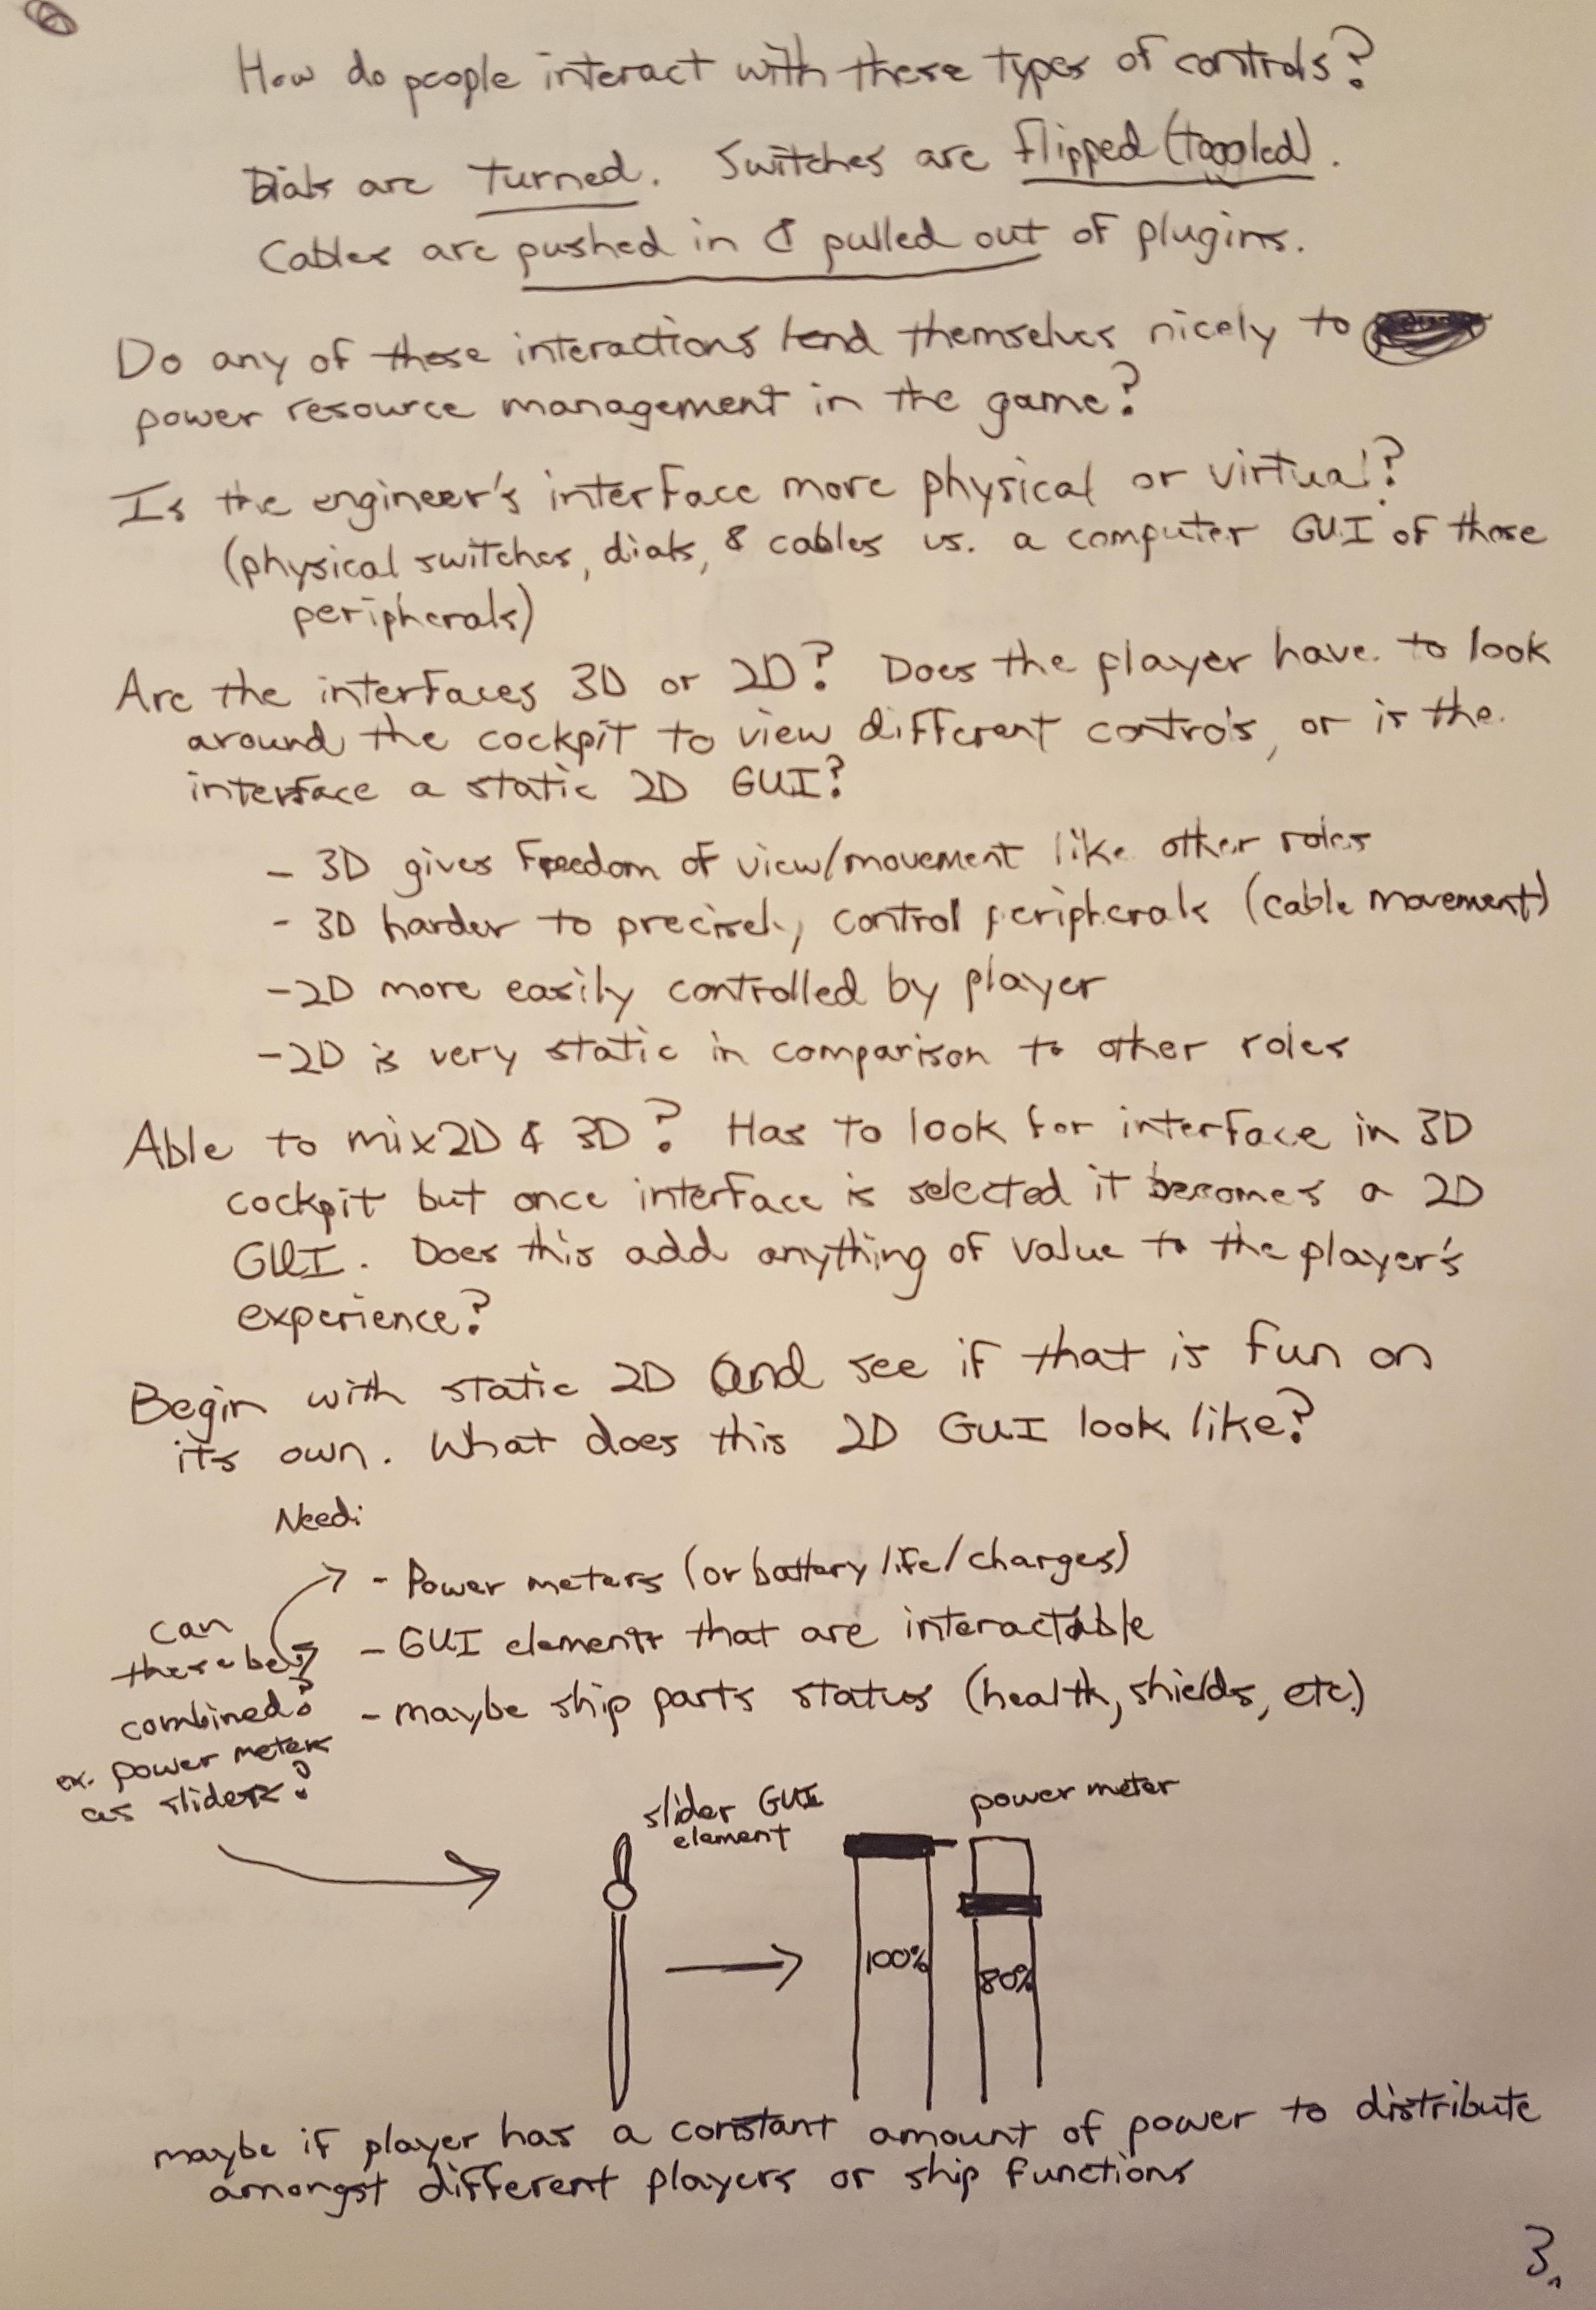 How do people interact with these types of controls?
Dials are turned. Switches are flipped (toggled).
Cables are pushed in & pulled out of plugins.
Do any of these interactions lend themselves nicely to
power resource management in the game?
Is the engineer's interface more physical or virtual?
(physical switches, dials, & cables vs. a computer GUI of those
peripherals)
Are the interfaces 3D or 2D? Does the player have to look
around the cockpit to view different controls, or is the
interface a static 2D GUI?
- 3D gives freedom of view/movement like other roles
- 3D harder to precisely control peripherals (cable movement)
- 2D more easily controlled by player
- 2D is very static in comparison to other roles
Able to mix 2D & 3D? Has to look for interface in 3D
cockpit but once interface is selected it becomes a 2D
GUI. Does this add anything of value to the player's
experience?
Begin with static 2D and see if that is fun on
its own. What does this 2D GUI look like?
Need:
- Power meters (or battery life/charges)
- GUI elements that are interactable
- maybe ship parts status (health, shields, etc.)
can
these be
combined?
ex. power meters
as sliders?
slider GUI
element
power meter
100%
80%
maybe if player has a constant amount of power to distribute
amongst different players or ship functions
3.